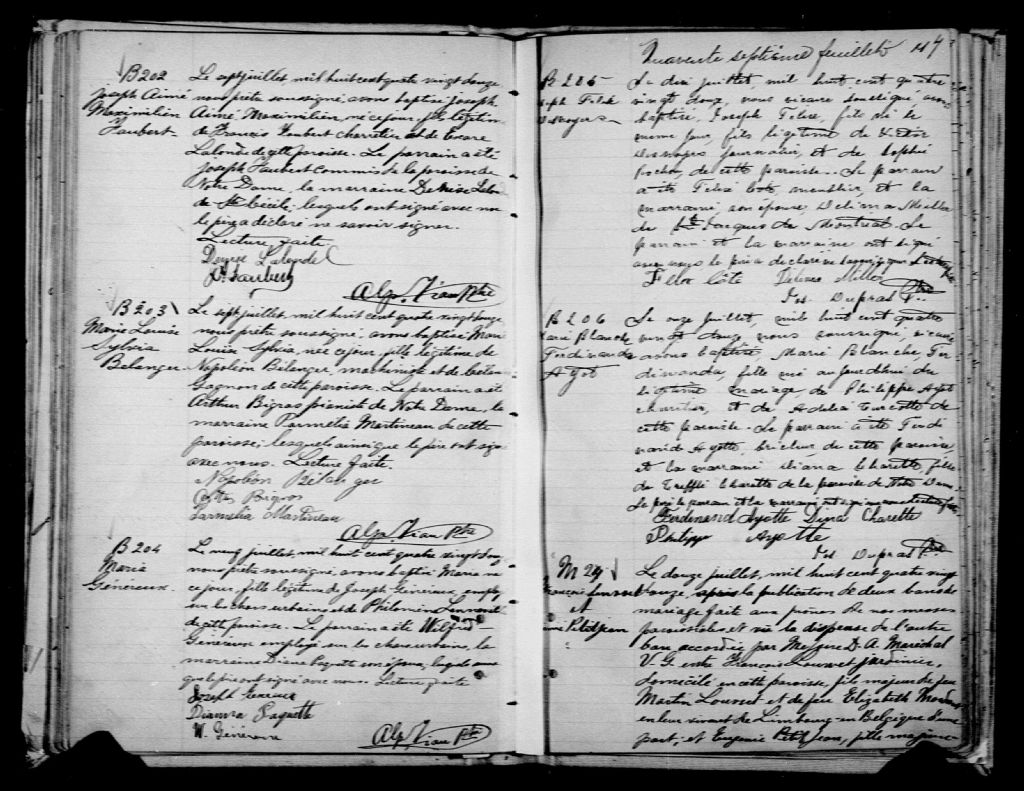 B202
Joseph Aimé
Maximilien
Jaubert.
Le sept juillet, mil huit cent quatre vingt douze
nous prêtre soussigné, avons baptisé Joseph
Aimé, Maximilien, né ce jour, fils légitime
de François Jaubert charretier et de
Lalonde de cette paroisse. Le parrain a été
Joseph Jaubert commis de la paroisse de
Notre Dame, la marraine Denise
de Ste Cécile; lesquels ont signé avec nous
le père a déclaré ne savoir signer.
Lecture faite
Denise Lalonde
Jaubert
Alp. Viau Ptre
B203
Marie Louise
Sylvia
Belanger
Le sept juillet, mil huit cent quatre vingt douze
nous prêtre soussigné, avons baptisé Marie
Louise Sylvia, née ce jour, fille légitime de
Napoléon Bélanger, machiniste et de
Gagnon de cette paroisse. Le parrain a été
Arthur Bigras pianiste de Notre Dame, la
marraine Parmelia Martineau de cette
paroisse; lesquels ainsi que le père ont signé
avec nous. Lecture faite.
Napoléon Bélanger
Bigras
Parmelia Martineau
Alp. Viau Ptre
B204
Maria
Généreux.
Le neuf juillet, mil huit cent quatre vingt douze
nous prêtre soussigné, avons baptisé Maria née
ce jour, fille légitime de Joseph Généreux, employé
sur les chars urbains, et de Philomène
de cette paroisse. Le parrain a été Wilfrid
Généreux employé sur les chars urbains, la
marraine Diana Paquette son épouse, lesquels ainsi
que le père ont signé avec nous. Lecture faite
Joseph Généreux
Dianna Paquette
W. Généreux
Alp. Viau Ptre
Quarante septième feuillet 47
B205
Joseph Felix
Desnoyers
Le dix juillet, mil huit cent quatre
vingt douze, nous vicaire soussigné, avons
baptisé, Joseph Felix, fils né le
même jour, fils légitime de
Desnoyers journalier, et de Sophie
de cette paroisse. Le parrain
a été Felix Coté meublier, et la
marraine, son épouse, Delima Miller
de St Jacques de Montreal. Le
parrain et la marraine ont signé
avec nous le père a déclaré ne savoir signer
Felix Côté Delima Miller
Jos. Dupras Ptre
B206
Marie Blanche
Ferdinanda
Ayot
Le onze juillet, mil huit cent quatre
vingt douze nous soussigné, vicaire
avons baptisé, Marie Blanche, Fer
dinanda, fille née aujourd'hui du
légitime mariage, de Philippe Ayot
charretier, et de Adelia Turcotte de
cette paroisse. Le parrain a été Ferdi
nand Ayotte, briqueleur, de cette paroisse,
et la marraine Diana Charette, fille
de Trefflé Charette de la paroisse de Notre Dame
le père le parrain et la marraine ont signé avec nous
Ferdinand Ayotte Dina Charette
Philippe Ayotte
Jos. Dupras Ptre
M 24
François Louwet
et
Petitjean
Le douze juillet, mil huit cent quatre vingt
douze, après la publication de deux bans de
mariage fait aux prônes de nos messes
paroissiales et vu la dispense de l'autre
ban, accordée par Messire D. A. Maréchal
V. G. entre François Louwet jardinier,
domicilié en cette paroisse, fils majeur de feu
Martin Louwet et de feu Elizabeth
en leur vivant de Limbourg en Belgique d'une
part; et Eugenie Petitjean, fille majeure